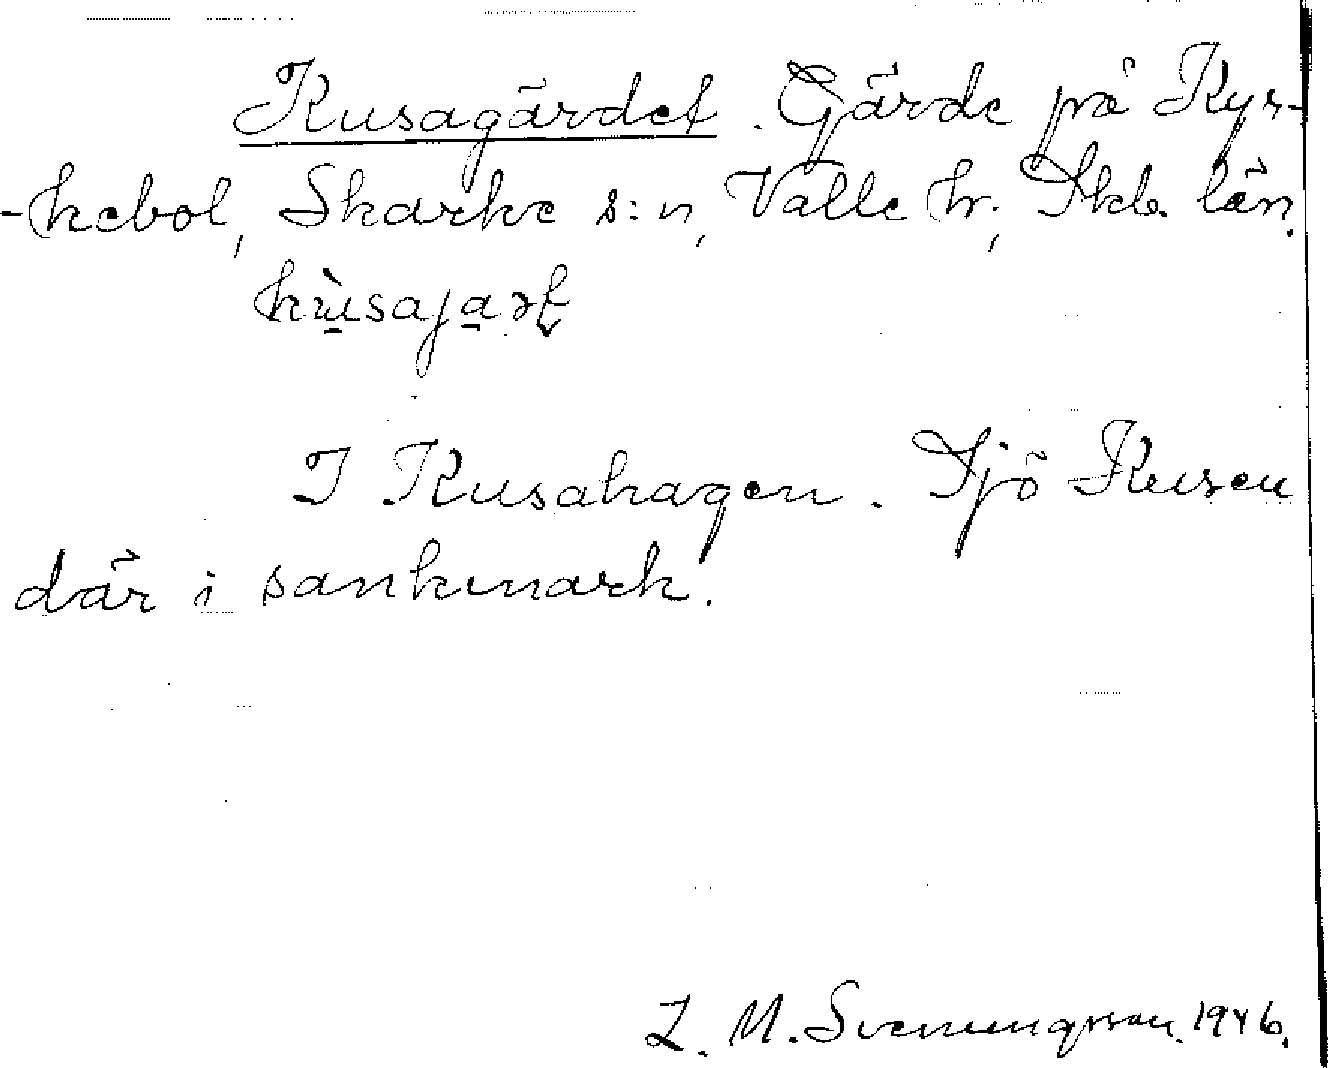 Kusagärdet. Gärde på Kyr-
-kebol, Skarke s:n, Valle hr, Skb. län.
kùsajaṛt
I Kusahagen. Sjö Kusen
där i sankmark.
L. M. Svenungsson. 1946.